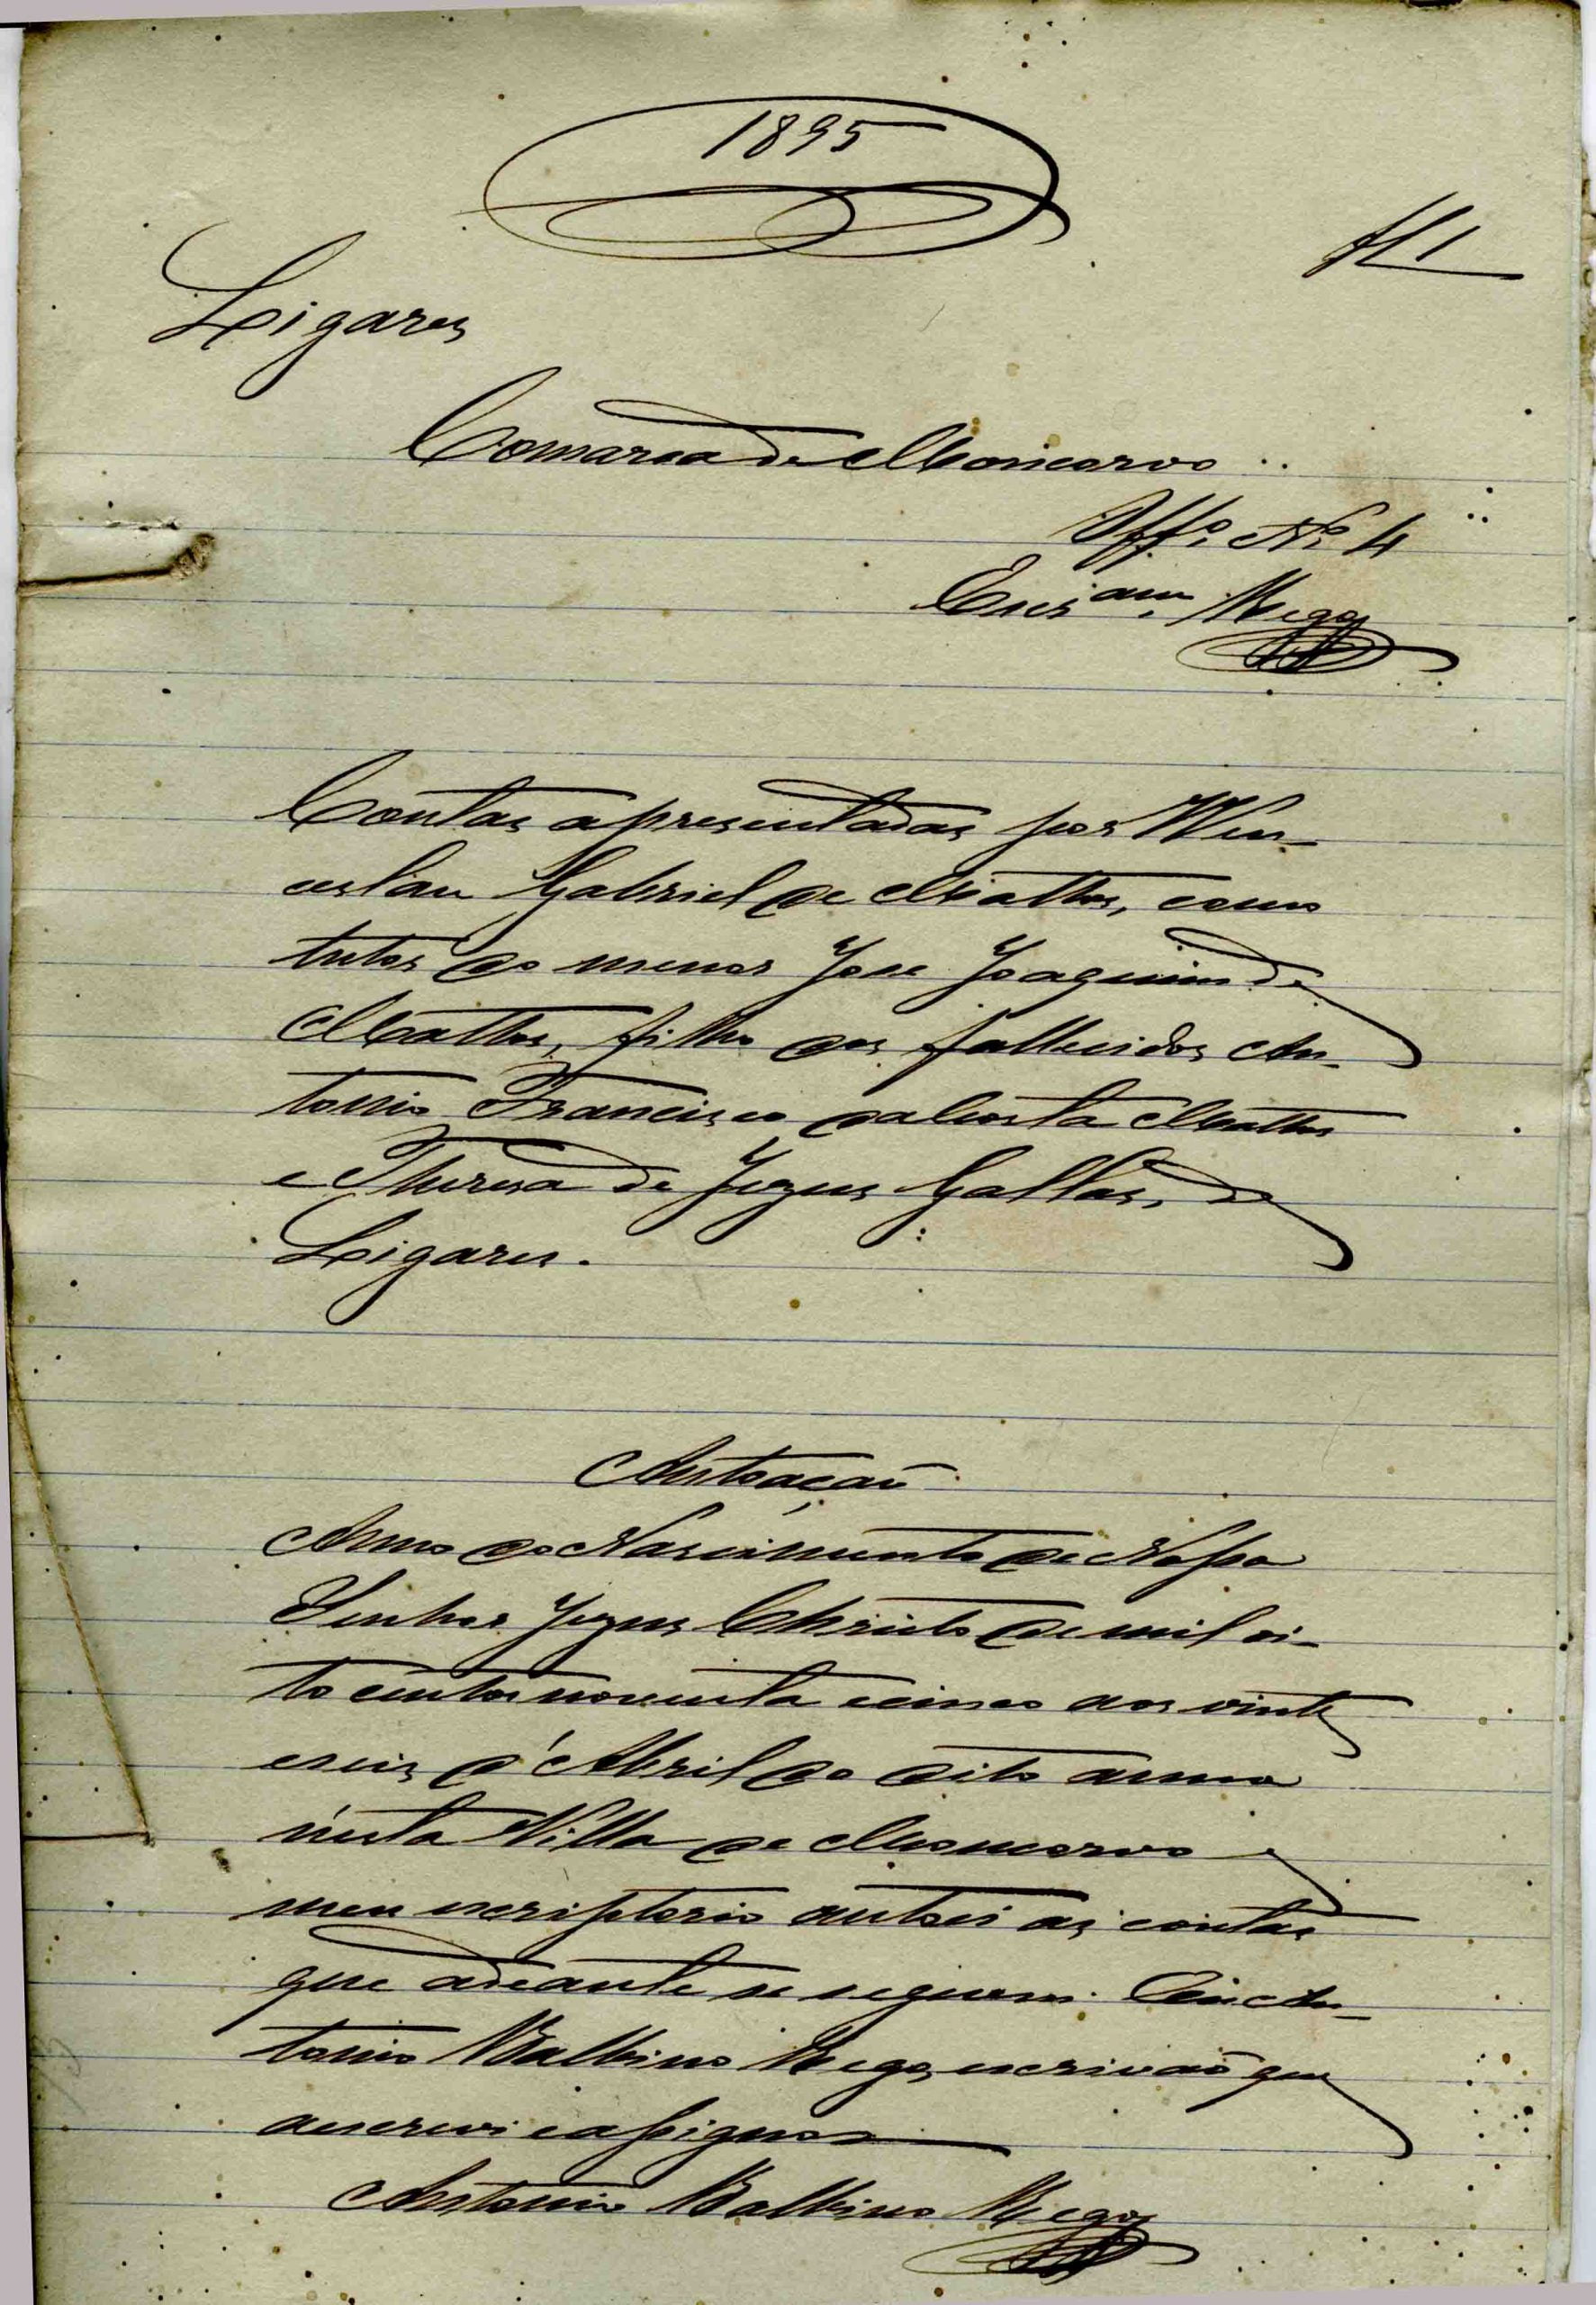 1895
fl 1
Ligares
Comarca de Moncorvo
Off.º Nº 4
Escr.am Rego
Contas apresentadas por Wen-
ceslau Gabriel de Mattos, como
tutor do menor Jose Joaquim de
Mattos, filho dos fallecidos An-
tonio Francisco da Costa Mattos
e Theresa de Jezus Gallas, de
Ligares.
Autoação
Anno do Nascimento de Nosso
Senhor Jezus Christo de mil oi-
to centos noventa e cinco aos vinte
e seis d'Abril do dito anno
n'esta Villa de Moncorvo e
meu escriptorio autoei as contas
que adeante se seguem. Eu An-
tonio Balbino Rego, escrivaõ que
a escrevi e assignei
Antonio Balbino Rego